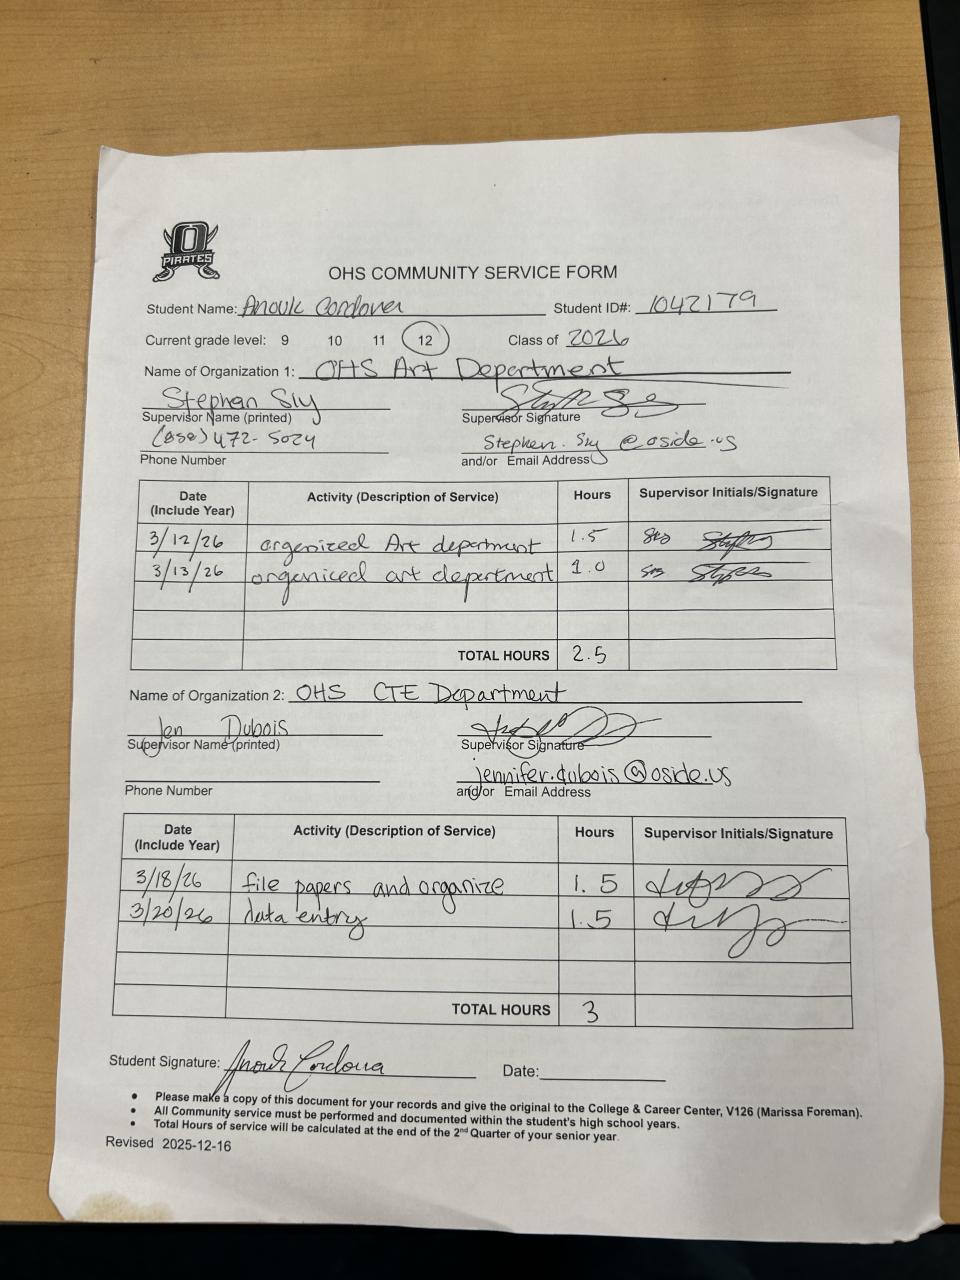 O
PIRATES
OHS COMMUNITY SERVICE FORM
Student Name: Anouk Cordova Student ID#: 1042179
Current grade level: 9 10 11 12 Class of 2026
Name of Organization 1: OHS Art Department
Stephen Sly
Supervisor Name (printed) Supervisor Signature
(858) 472-5024 Stephen.Sly@oside.us
Phone Number and/or Email Address
Date (Include Year) Activity (Description of Service) Hours Supervisor Initials/Signature
3/12/26 organized Art department 1.5
3/13/26 organiced art department 1.0
TOTAL HOURS 2.5
Name of Organization 2: OHS CTE Department
Jen Dubois
Supervisor Name (printed) Supervisor Signature
jennifer.dubois@oside.us
Phone Number and/or Email Address
Date (Include Year) Activity (Description of Service) Hours Supervisor Initials/Signature
3/18/26 file papers and organize 1.5
3/20/26 data entry 1.5
TOTAL HOURS 3
Student Signature: Anouk Cordova Date:
• Please make a copy of this document for your records and give the original to the College & Career Center, V126 (Marissa Foreman).
• All Community service must be performed and documented within the student's high school years.
• Total Hours of service will be calculated at the end of the 2nd Quarter of your senior year.
Revised 2025-12-16